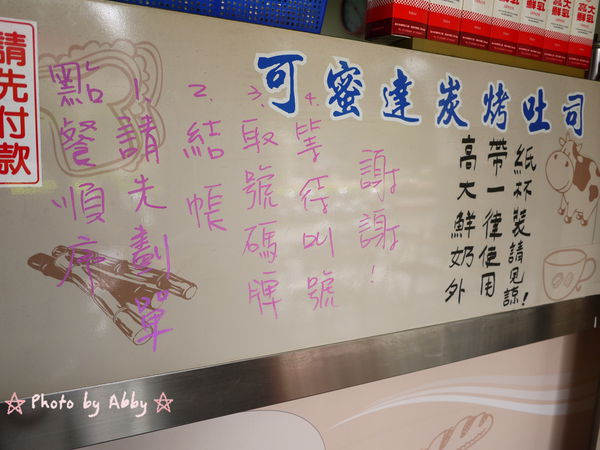 請先付款
可蜜達炭烤吐司
點餐順序
1.請先劃單
2.結帳
3.取號碼牌
4.等待叫號
謝謝!
高大鮮奶外
帶一律使用
紙杯裝請見諒!
高大鮮乳
☆ Photo by Abby ☆